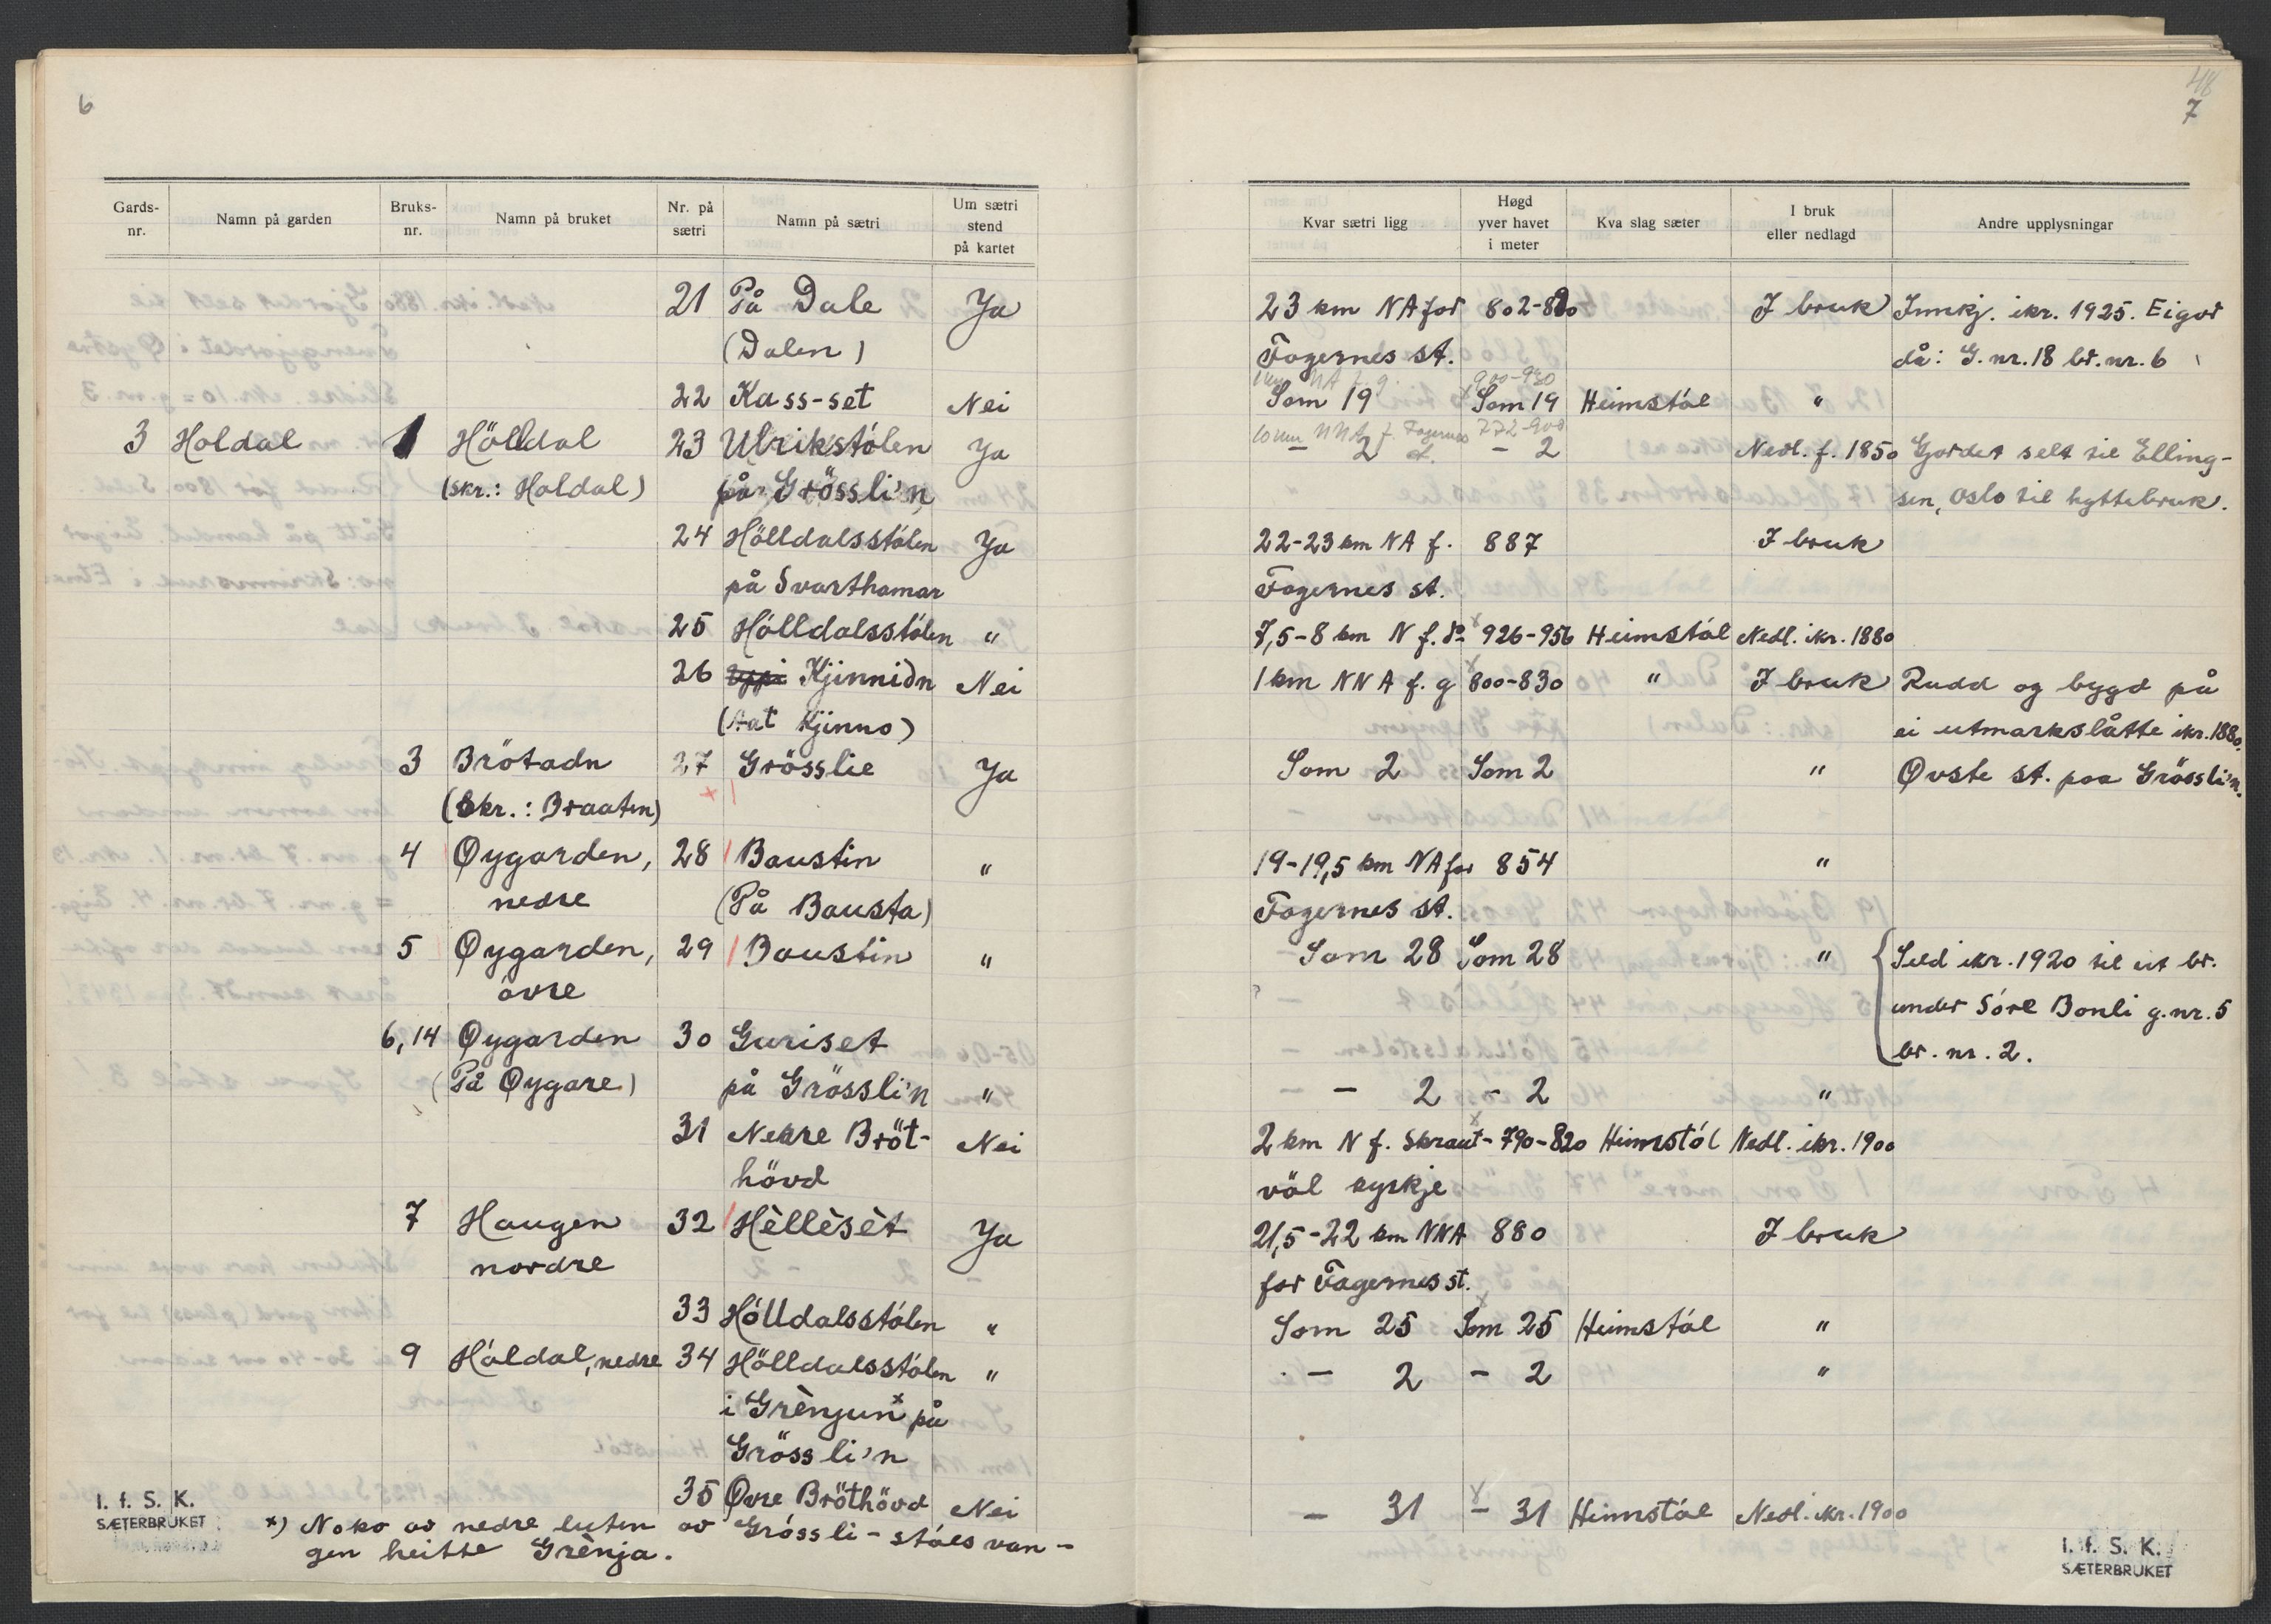 6
Gards-nr. Namn på garden Bruks-nr. Namn på bruket Nr. på sætri Namn på sætri Um sætri stend på kartet
21 På Dale Ja
(Dalen)
22 Kass-set Nei
3 Holdal 1 Hölldal 23 Ulrikstólen Ja
(skr.: Holdal) på Grössli'n
24 Hölldalsstólen Ja
på Svarthamar
25 Hölldalsstólen "
26 Kjinnidn Nei
(tat Kjinno)
3 Brötadn 27 Grösslie Ja
(Skr.: Braaten) +
4 Øygarden, 28 Baustin "
nedre (På Bausta)
5 Øygarden, 29 Baustin "
övre
6, 14 Øygarden 30 Guriset
(På Øygare) på Grössli'n "
31 Nedre Bröt- Nei
hövd
7 Haugen 32 Hèllèsèt Ja
nordre
33 Hölldalsstólen "
9 Hóldal, nedre 34 Hölldalsstólen "
i Grènjun x på
Grössli'n
35 Øvre Bröthövd Nei
x) Noko av nedre luten av Grössli-stóls van-
gen heitte Grènja.
I. f. S. K.
SÆTERBRUKET
48
7
Kvar sætri ligg Høgd yver havet i meter Kva slag sæter I bruk eller nedlagd Andre upplysningar
23 km NA for 802-820 I bruk Innkj. ikr. 1925. Eigar
Fagernes st. då: G. nr. 18 br. nr. 6
1 km NA f. g. 900-930
Som 19 x Som 19 Heimstól "
10 km NNA f. Fagernes st. 772-900
— 2 — 2 Nedl. f. 1850 Gjordet selt til Elling-
sen, Oslo til hyttebruk.
22-23 km NA f. 887 I bruk
Fagernes st.
7,5-8 km N f. do x 926-956 Heimstól Nedl. ikr. 1880
1 km NNA f. g x 800-830 " I bruk Rudd og bygd på
ei utmarkslåtte ikr. 1880.
Som 2 Som 2 " Øvste st. paa Grössli'n.
19-19,5 km NA for 854 "
Fagernes st.
Som 28 Som 28 " Seld ikr. 1920 til eit br.
under Söre Bonli g. nr. 5
br. nr. 2.
— 2 — 2 "
2 km N f. Skraut- x 790-820 Heimstól Nedl. ikr. 1900
völ kyrkje
21,5-22 km NNA 880 I bruk
for Fagernes st.
Som 25 x Som 25 Heimstól "
— 2 — 2 "
— 31 x — 31 Heimstól Nedl. ikr. 1900
I. f. S. K.
SÆTERBRUKET